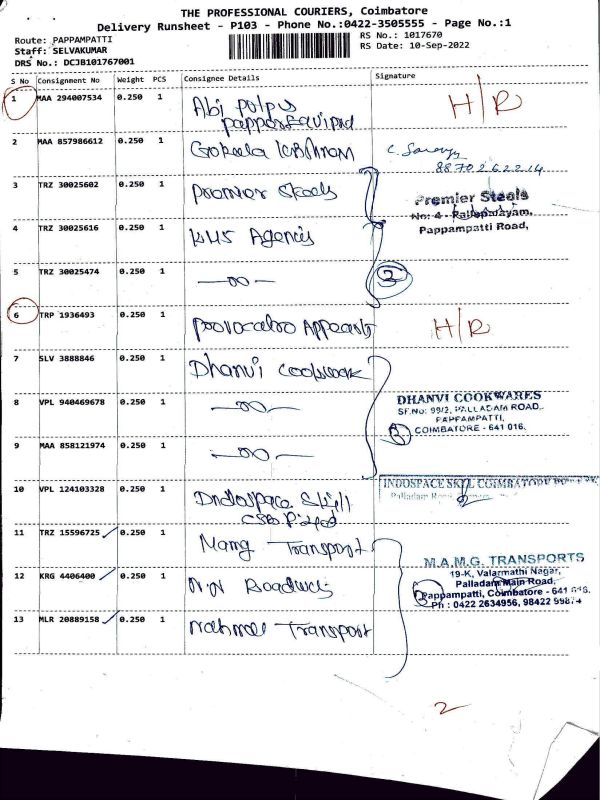 THE PROFESSIONAL COURIERS, Coimbatore
Delivery Runsheet - P103 - Phone No.:0422-3505555 - Page No.:1
Route: PAPPAMPATTI
Staff: SELVAKUMAR
DRS No.: DCJB101767001
RS No.: 1017670
RS Date: 10-Sep-2022
S No Consignment No Weight PCS Consignee Details Signature
1 MAA 294007534 0.250 1 H/R
2 MAA 857986612 0.250 1
3 TRZ 30025602 0.250 1 Premier Steels
Premier Steels
No: 4 - Rallepalayam,
Pappampatti Road,
4 TRZ 30025616 0.250 1 KMS Agencis
5 TRZ 30025474 0.250 1 3
6 TRP 1936493 0.250 1 H/R
7 SLV 3888846 0.250 1 Dhanvi Cookware
8 VPL 940469678 0.250 1
DHANVI COOKWARES
SF.No: 99/2, PALLADAM ROAD,
PAPPAMPATTI,
COIMBATORE - 641 016.
3
9 MAA 858121974 0.250 1
10 VPL 124103328 0.250 1
INDOSPACE SKCL COIMBATORE
Palladam Road
11 TRZ 15596725 0.250 1 Mamg Transport
M.A.M.G. TRANSPORTS
19-K, Valarmathi Nagar,
Palladam Main Road,
Pappampatti, Coimbatore - 641 016.
Ph : 0422 2634956, 98422 99874
12 KRG 4406400 0.250 1
13 MLR 20889158 0.250 1 Transport
2